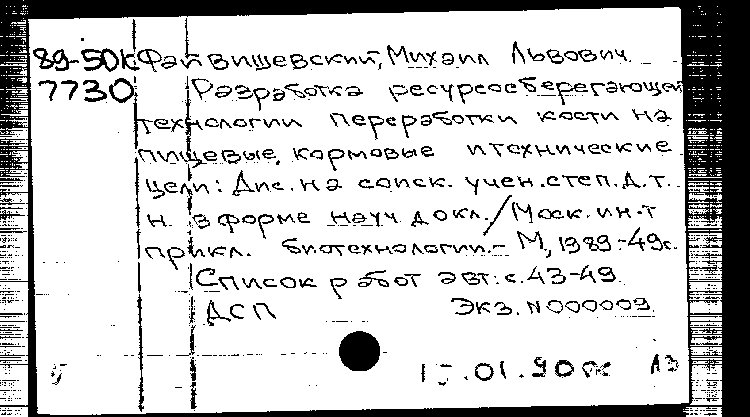 89-50к Файвишевский, Михаил Львович
7730 Разработка ресурсосберегающей
технологии переработки кости на
пищевые, кормовые и технические
цели: Дис. на соиск. учен. степ. д. т.
н. в форме науч докл./Моск. ин-т
прикл. биотехнологии.- М, 1989.-49с.
Список работ авт: с. 43-49
ДСП Экз. N000009
15.01.90